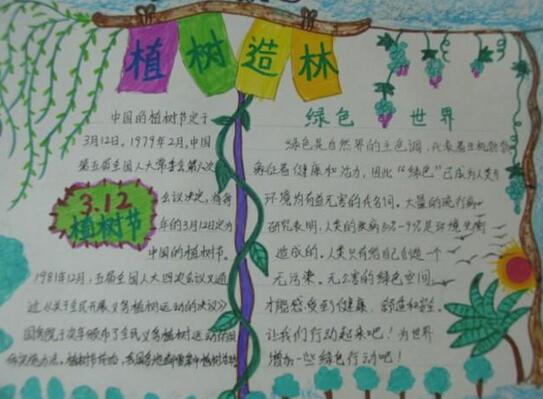 植树造林
中国的植树节定于
3月12日。1979年2月,中国
第五届全国人大常委会第六次
3.12
植树节
会议决定,将每
年的3月12日定为
中国的植树节。
1981年12月,五届全国人大四次会议又通
过《关于全民开展义务植树运动的决议》
国务院于次年颁布了全民义务植树运动
绿色世界
绿色是自然界的主色调,代表着生机勃勃
着健康和活力,因此“绿色”已成为人类与
环境为有益无害的代名词。大量的流行病
研究表明,人类的疾病
是环境
造成的。人类只有给自己创造一个
无污染。无公害的绿色空间
才能感受到健康、舒适和
让我们行动起来吧!为世界
增加一些绿色行动吧!